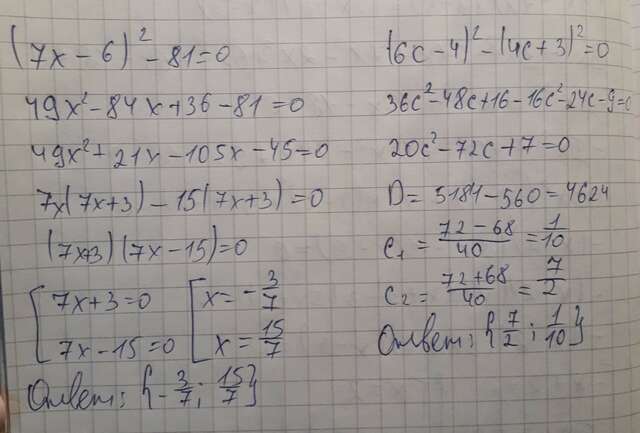 (7x - 6)² - 81 = 0
49x² - 84x + 36 - 81 = 0
49x² + 21x - 105x - 45 = 0
7x(7x+3) - 15(7x+3) = 0
(7x+3)(7x-15) = 0
[7x+3=0 [x = -3/7
7x-15=0 x = 15/7
Ответ: {-3/7; 15/7}
(6c - 4)² - (4c + 3)² = 0
36c² - 48c + 16 - 16c² - 24c - 9 = 0
20c² - 72c + 7 = 0
D = 5184 - 560 = 4624
c₁ = (72 - 68)/40 = 1/10
c₂ = (72 + 68)/40 = 7/2
Ответ: {7/2; 1/10}